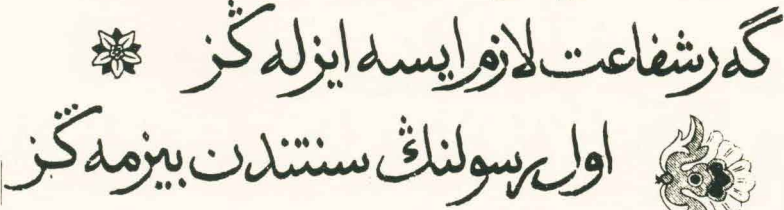 گەر شفاعت لازم ایسه ایزله ڭز
اول رسولنڭ سنتندن بیزمه ڭز